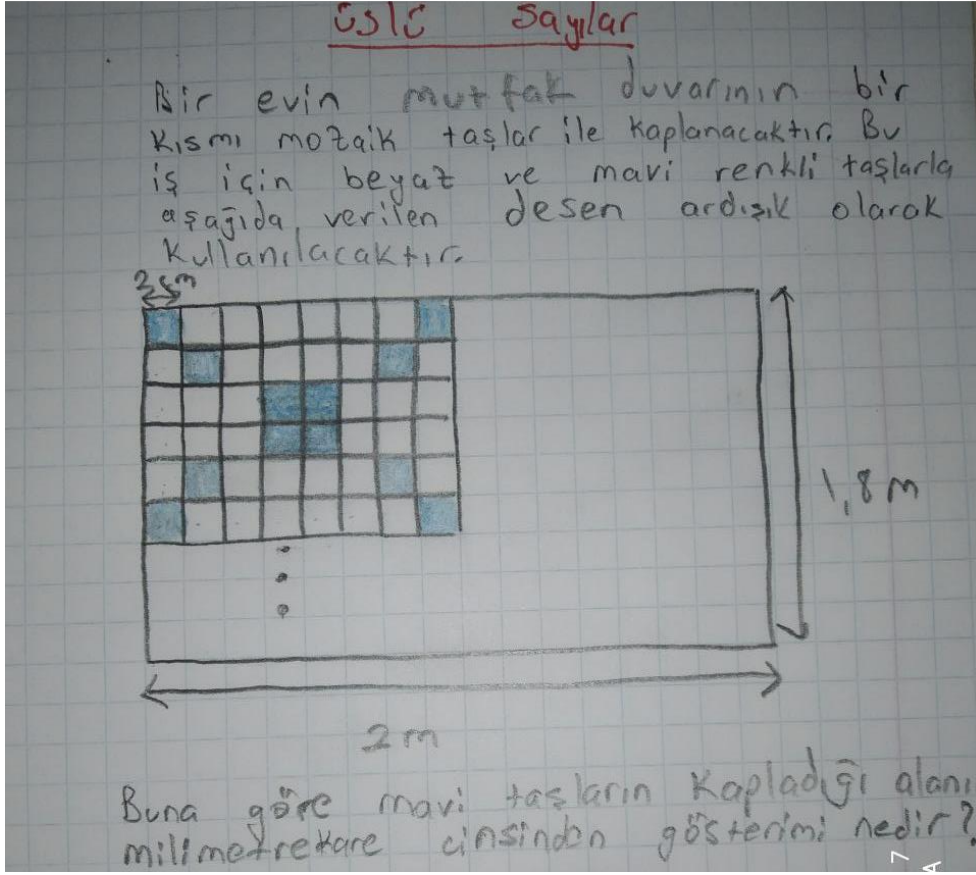 üslü sayılar
Bir evin mutfak duvarının bir
Kısmı mozaik taşlar ile kaplanacaktır. Bu
iş için beyaz ve mavi renkli taşlarla
aşağıda verilen desen ardışık olarak
Kullanılacaktır.
1,8 m
2 m
Buna göre mavi taşların Kapladığı alanı
milimetrekare cinsinden gösterimi nedir?
7
A